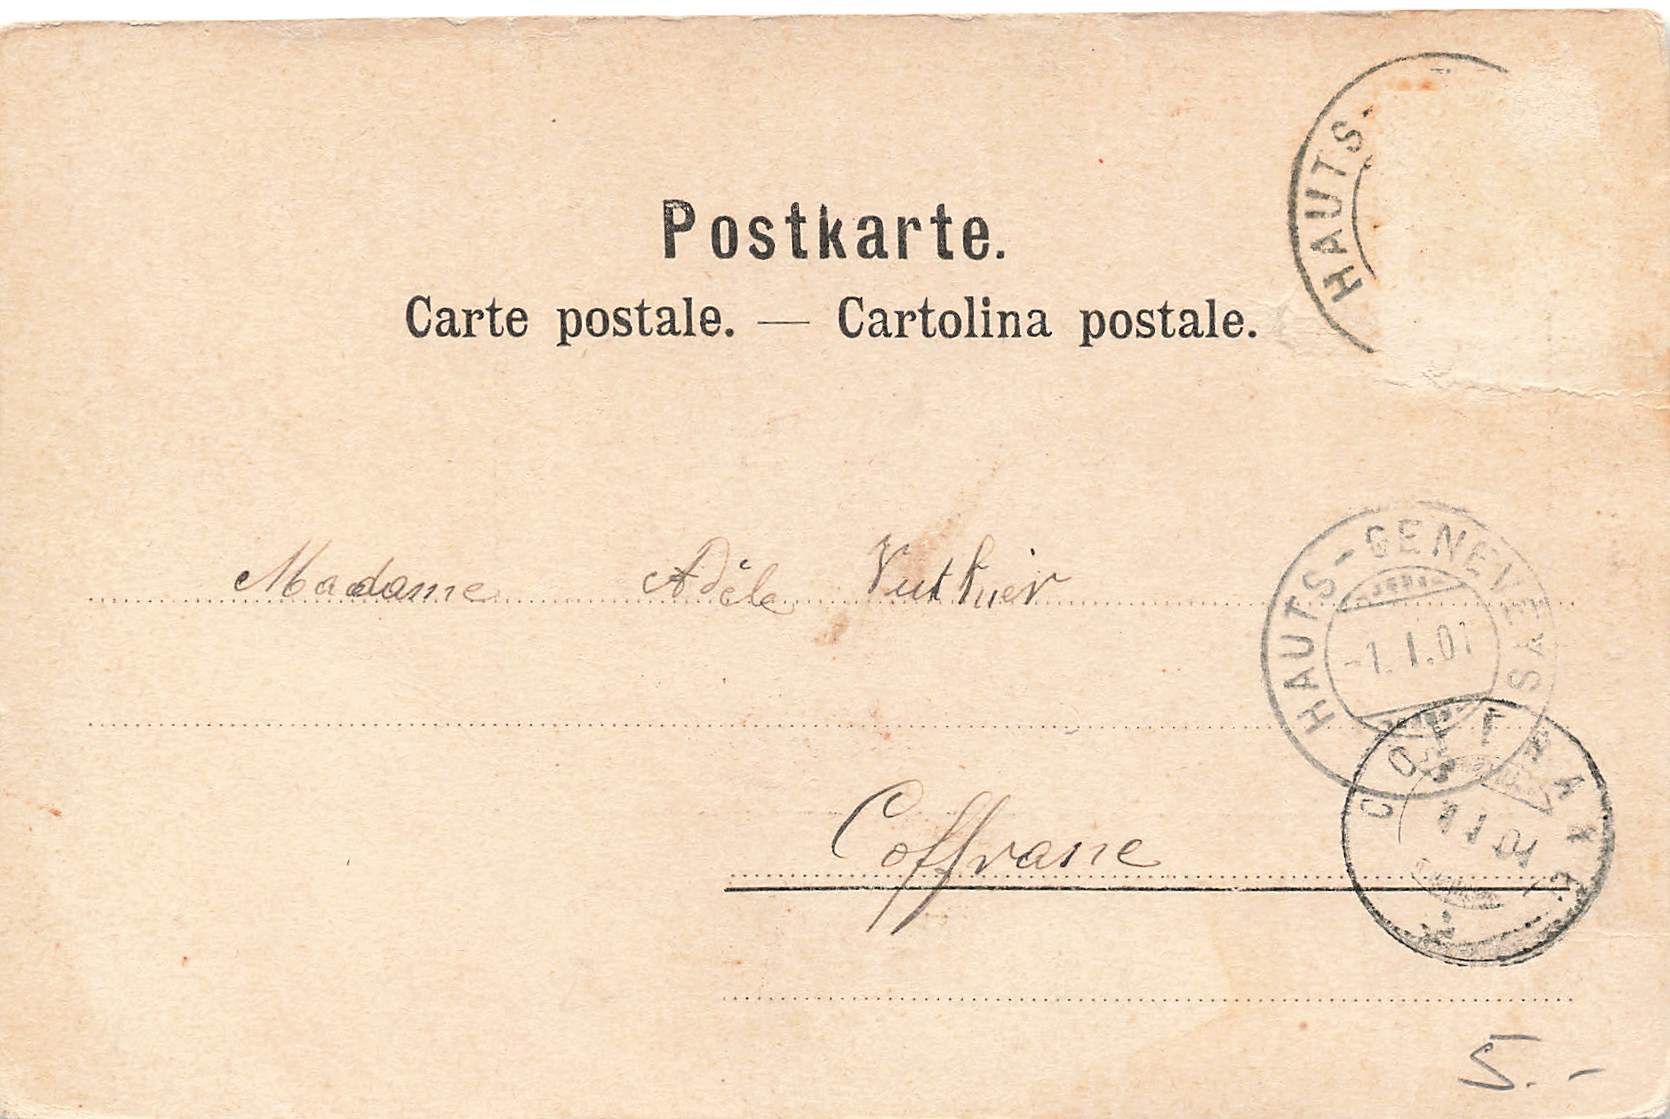 Postkarte.
Carte postale. — Cartolina postale.
HAUTS-
Madame Adèle Vuthier
HAUTS-GENEVEYS
-1.I.01
COFFRANE
1 I 01
Coffrane
5.-